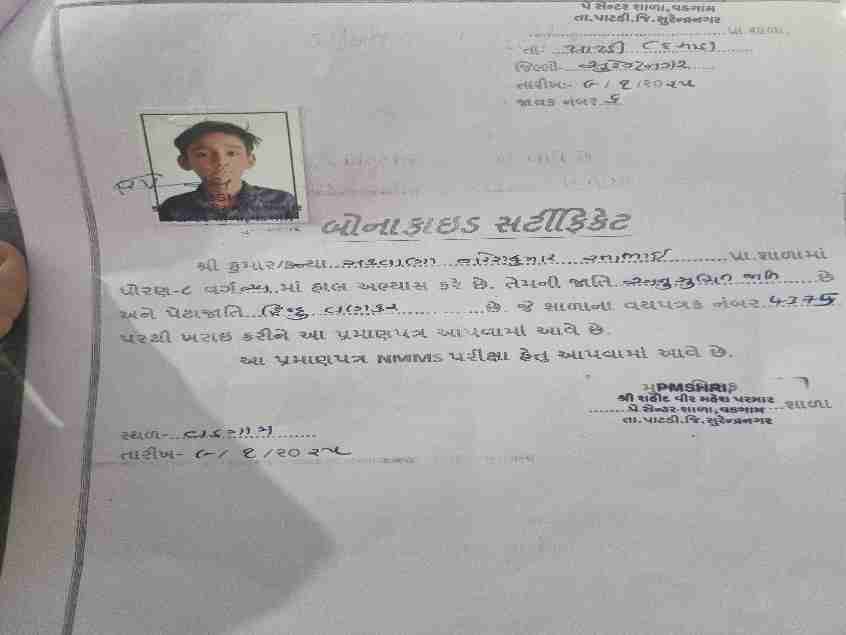 પે સેન્ટર શાળા, વડગામ
તા.પાટડી.જિ.સુરેન્દ્રનગર
પ્રા.શાળા,
તાઃ
જિલ્લોઃ- સુરેન્દ્રનગર
તારીખઃ- ૯/૧/૨૦૨૫
જાવક નંબર ૬
બોનાફાઇડ સર્ટીફિકેટ
શ્રી કુમાર/કન્યા પ્રા.શાળામાં
ધોરણ-૮ વર્ગ માં હાલ અભ્યાસ કરે છે. તેમની જાતિ અનુસુચિત જાતિ છે
અને પેટાજાતિ હિન્દુ વણકર છે. જે શાળાના વયપત્રક નંબર
પરથી ખરાઇ કરીને આ પ્રમાણપત્ર આપવામાં આવે છે.
આ પ્રમાણપત્ર NMMS પરીક્ષા હેતુ આપવામાં આવે છે.
PMSHRI
શ્રી શહીદ વીર મહેશ પરમાર
પે સેન્ટર શાળા, વડગામ શાળા
તા.પાટડી.જિ.સુરેન્દ્રનગર
સ્થળ:- વડગામ
તારીખ:- ૯/૧/૨૦૨૫